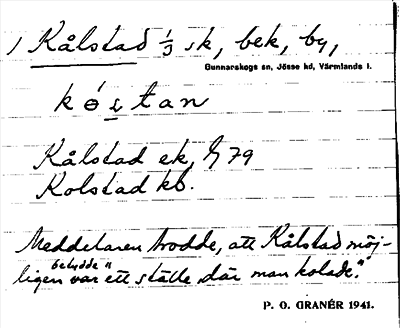 1 Kålstad 1/3 sk, bek, by,
Gunnarskogs sn, Jösse hd, Värmlands l.
Kålstad ek, 79
Kolstad kb.
Meddelaren trodde, att Kålstad möj-
ligen betydde "var ett ställe, där man kolade."
P. O. GRANÉR 1941.